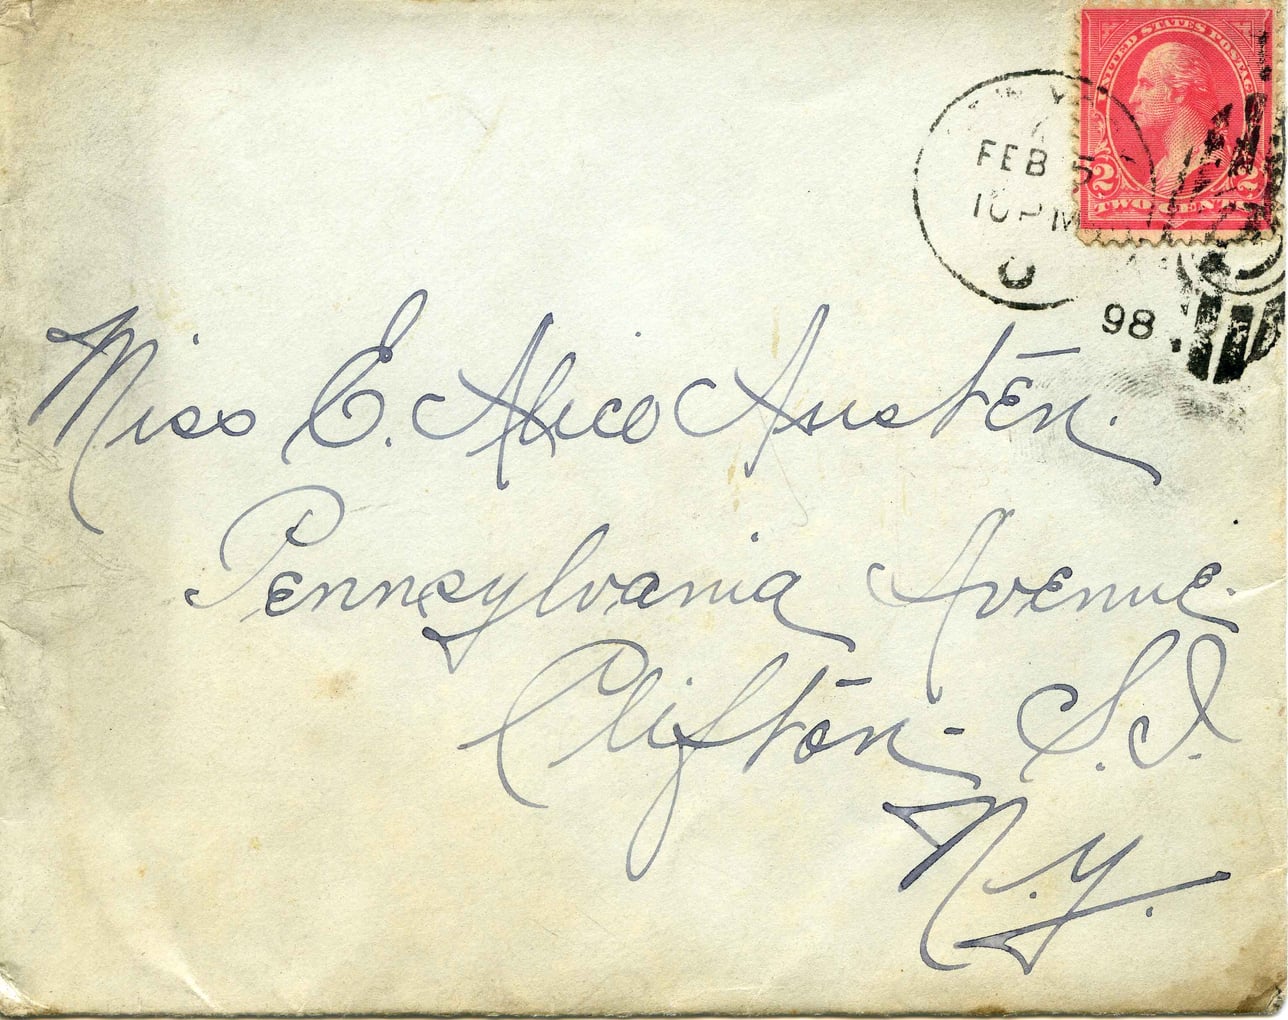 UNITED STATES POSTAGE
2 2
TWO CENTS
FEB 5
10 PM
98
Miss E. Alice Austen.
Pennsylvania Avenue.
Clifton - S.I.
N.Y.